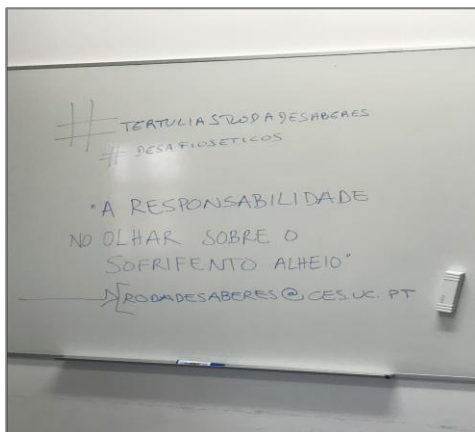 # TERTULIASRODADESABERES
# DESAFIOSETICOS
"A RESPONSABILIDADE
NO OLHAR SOBRE O
SOFRIFENTO ALHEIO"
RODADESABERES@CES.UC.PT